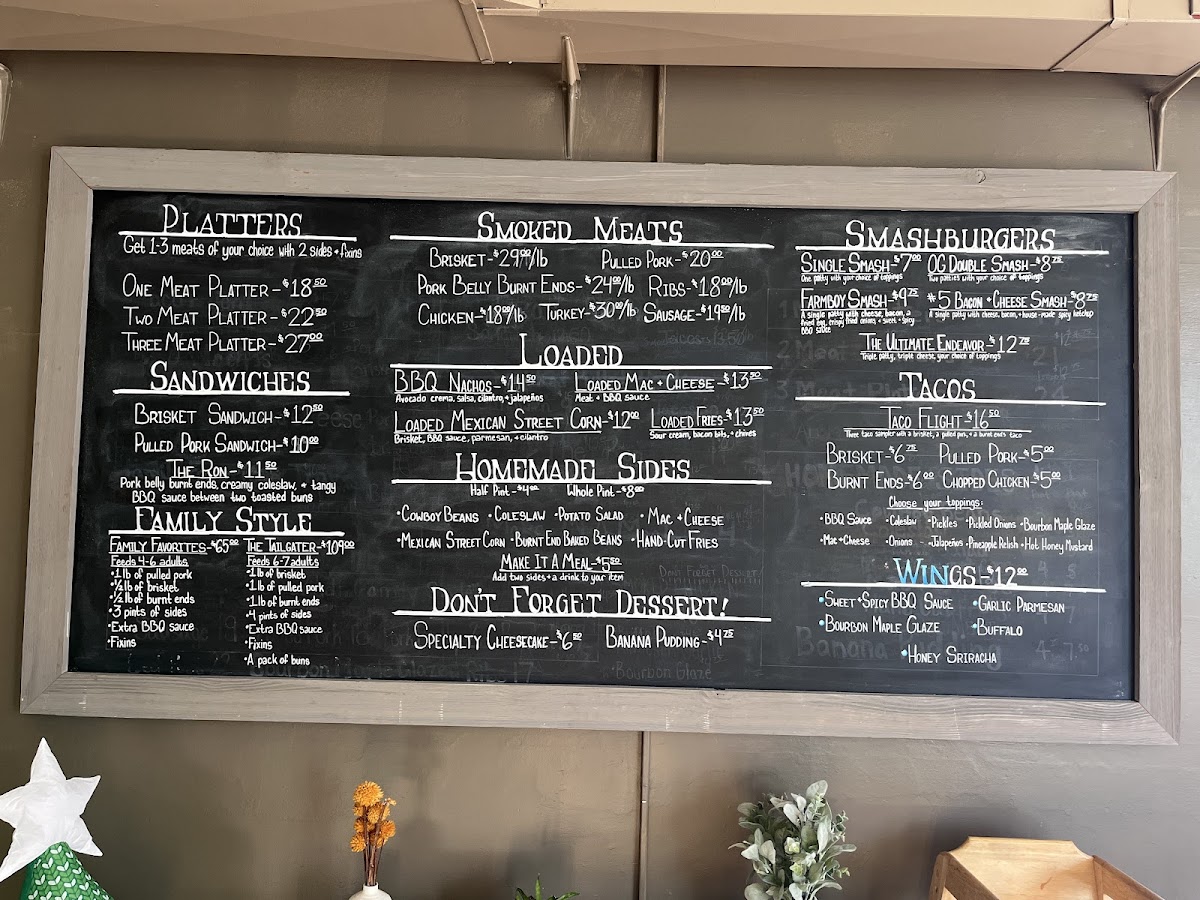 PLATTERS
Get 1-3 meats of your choice with 2 sides + fixins
ONE MEAT PLATTER - $18.50
TWO MEAT PLATTER - $22.50
THREE MEAT PLATTER - $27.00
SANDWICHES
BRISKET SANDWICH - $12.50
PULLED PORK SANDWICH - $10.00
THE RON - $11.50
Pork belly burnt ends, creamy coleslaw, + tangy
BBQ sauce between two toasted buns
FAMILY STYLE
FAMILY FAVORITES - $65.00
Feeds 4-6 adults
• 1 lb of pulled pork
• ½ lb of brisket
• ½ lb of burnt ends
• 3 pints of sides
• Extra BBQ sauce
• Fixins
THE TAILGATER - $109.00
Feeds 6-7 adults
• 1 lb of brisket
• 1 lb of pulled pork
• 1 lb of burnt ends
• 4 pints of sides
• Extra BBQ sauce
• Fixins
• A pack of buns
SMOKED MEATS
BRISKET - $29.00/lb PULLED PORK - $20.00
PORK BELLY BURNT ENDS - $24.00/lb RIBS - $18.00/lb
CHICKEN - $18.00/lb TURKEY - $30.00/lb SAUSAGE - $19.50/lb
LOADED
BBQ NACHOS - $14.50 LOADED MAC + CHEESE - $13.50
Avocado crema, salsa, cilantro, + jalapeños Meat + BBQ sauce
LOADED MEXICAN STREET CORN - $12.00 LOADED FRIES - $13.50
Brisket, BBQ sauce, parmesan, + cilantro Sour cream, bacon bits, + chives
HOMEMADE SIDES
Half Pint - $4.00 Whole Pint - $8.00
• COWBOY BEANS • COLESLAW • POTATO SALAD • MAC + CHEESE
• MEXICAN STREET CORN • BURNT END BAKED BEANS • HAND-CUT FRIES
MAKE IT A MEAL - $5.50
Add two sides + a drink to your item
DON'T FORGET DESSERT!
SPECIALTY CHEESECAKE - $6.50 BANANA PUDDING - $4.75
SMASHBURGERS
SINGLE SMASH - $7.00 OG DOUBLE SMASH - $8.75
One patty with your choice of toppings Two patties with your choice of toppings
FARMBOY SMASH - $9.75 #5 BACON + CHEESE SMASH - $8.75
A single patty with cheese, bacon, a A single patty with cheese, bacon, + house-made spicy ketchup
fried egg, crispy fried onions, + sweet + spicy
BBQ sauce
THE ULTIMATE ENDEAVOR - $12.75
Triple patty, triple cheese, your choice of toppings
TACOS
TACO FLIGHT - $16.50
Three taco sampler with a brisket, a pulled pork, + a burnt ends taco
BRISKET - $6.75 PULLED PORK - $5.00
BURNT ENDS - $6.00 CHOPPED CHICKEN - $5.00
Choose your toppings:
• BBQ Sauce • Coleslaw • Pickles • Pickled Onions • Bourbon Maple Glaze
• Mac + Cheese • Onions • Jalapeños • Pineapple Relish • Hot Honey Mustard
WINGS - $12.00
• SWEET + SPICY BBQ SAUCE • GARLIC PARMESAN
• BOURBON MAPLE GLAZE • BUFFALO
• HONEY SRIRACHA